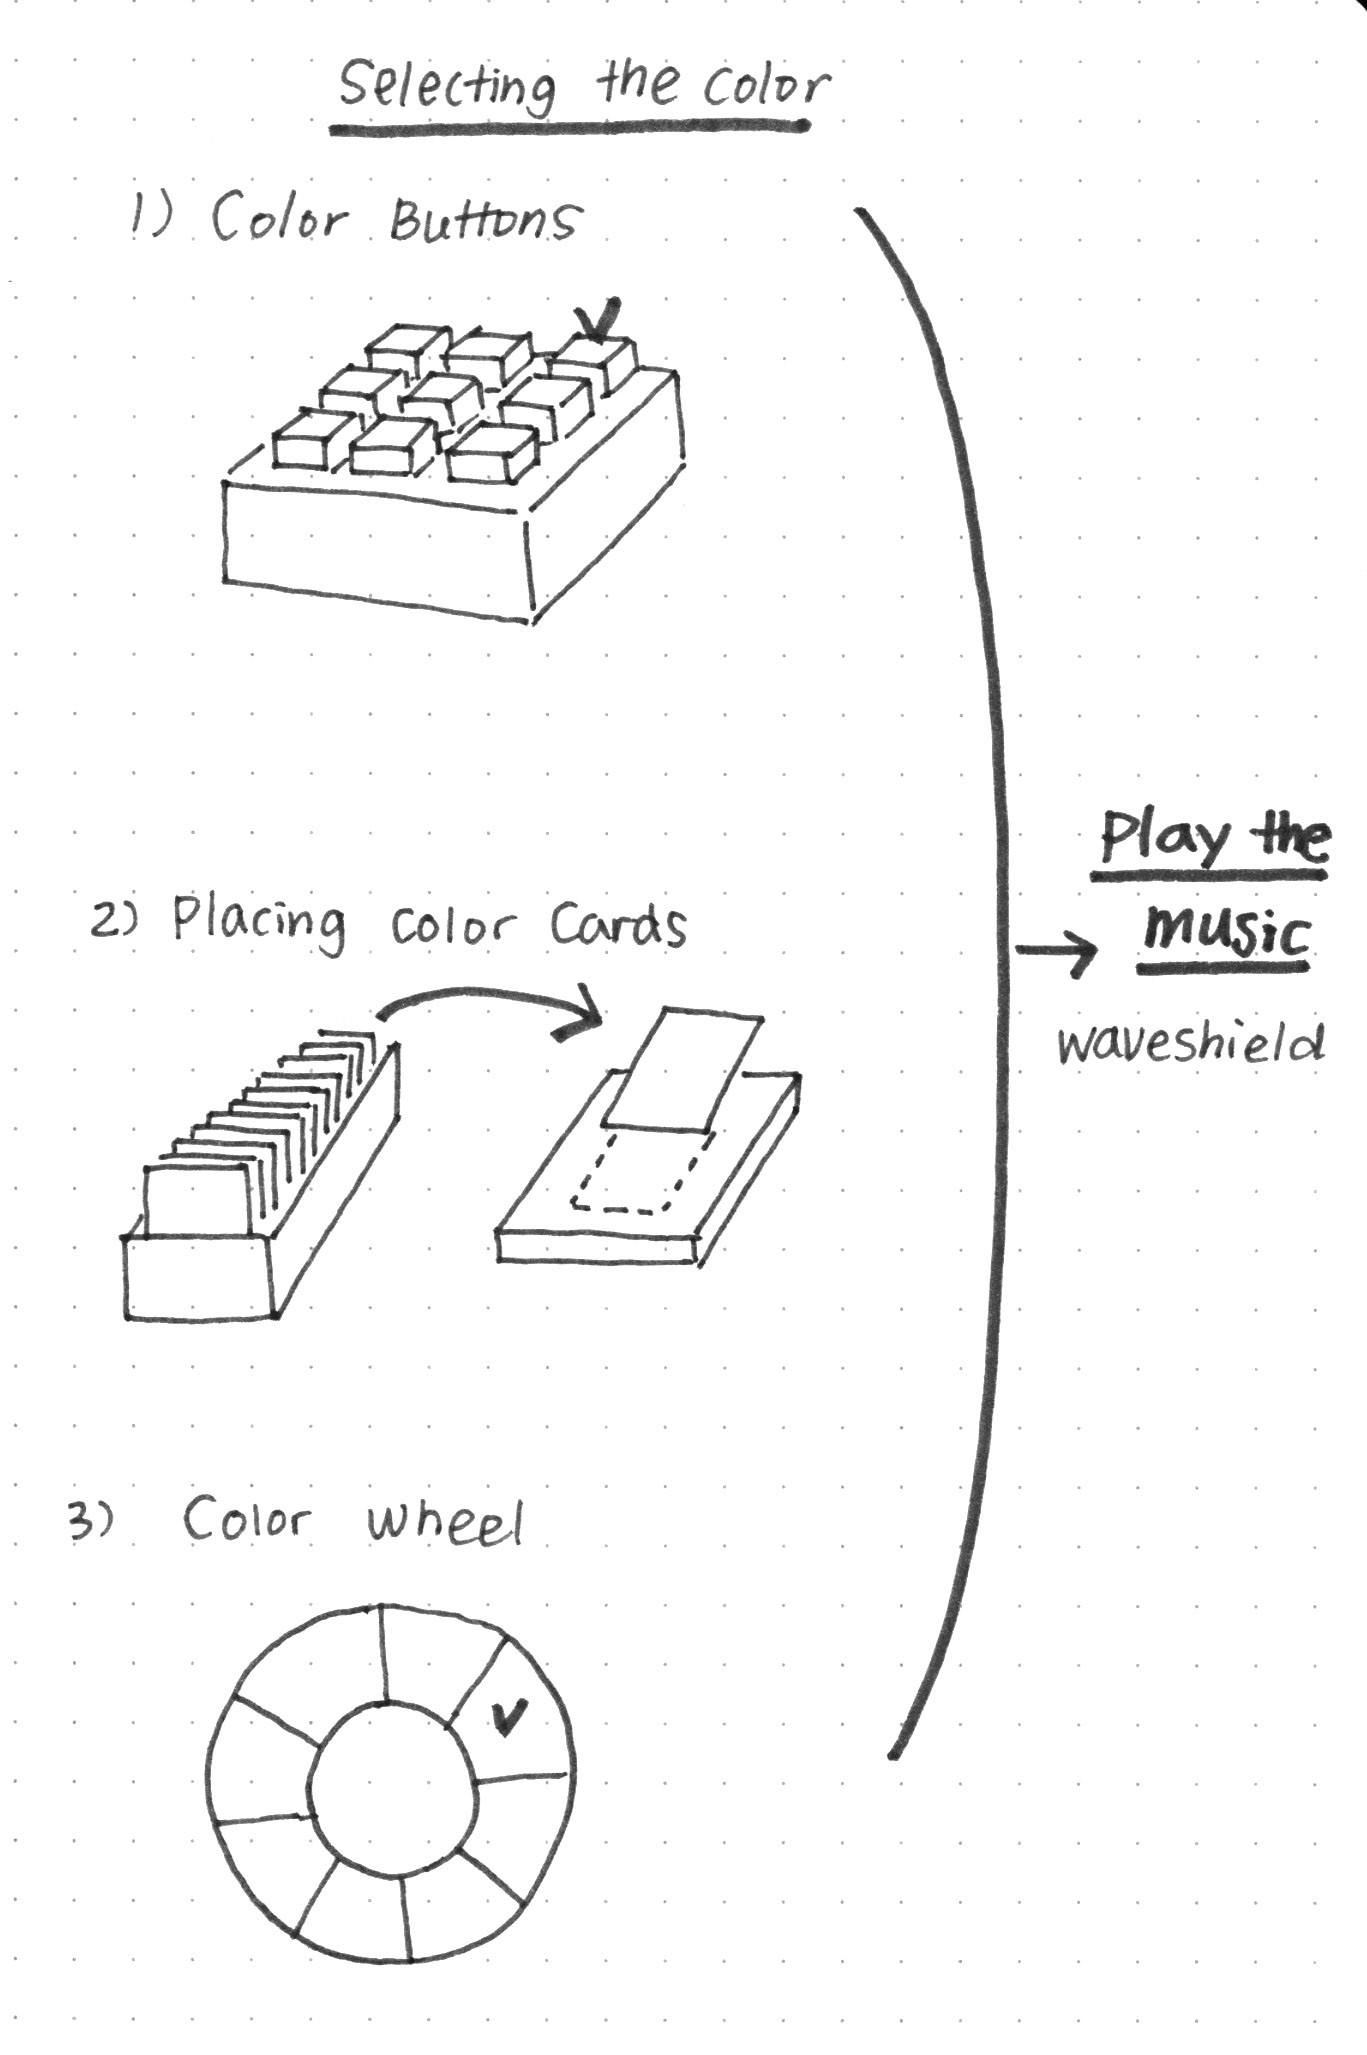 Selecting the color
1) Color Buttons
2) Placing color Cards
3) Color wheel
Play the
music
waveshield